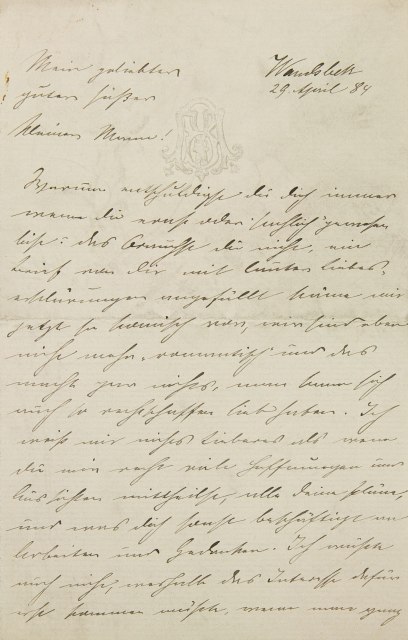 Mein geliebter
guter süßer
kleiner Mann!
Wandsbek
29. April 84
Warum entschuldigst du dich immer
wenn du ernst oder sachlich gewesen
bist? das brauchst du nicht, ein
Brief von dir mit lauter Liebes-
erklärungen angefüllt käme mir
jetzt so komisch vor, wir sind eben
nicht mehr romantisch und das
macht gar nichts, man kann sich
auch so rechtschaffen lieb haben. Ich
weiß mir nichts lieberes als wenn
du mir recht viele Hoffnungen und
Aussichten mittheilst, alle deine Pläne,
und was dich sonst beschäftigt an
Arbeiten und Gedanken. Ich wüßte
auch nicht, weshalb das Interesse dafür
erst kommen müßte, wenn man ganz